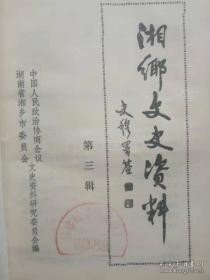 湘乡文史资料
文穆署签
第三辑
中国人民政治协商会议
湖南省湘乡市委员会
文史资料研究委员会编